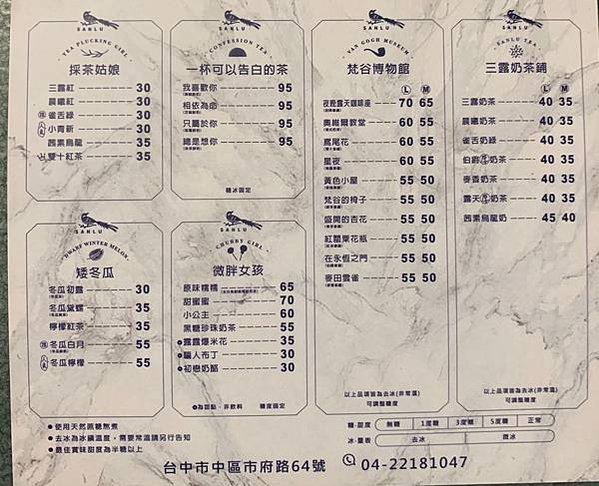 SANLU
TEA PLUCKING GIRL
採茶姑娘
三露紅 30
晨曦紅 30
雀舌綠 30
小青新 30
茜素烏龍 35
雙十紅茶 35
SANLU
CONFESSION TEA
一杯可以告白的茶
我喜歡你 95
相依為命 95
只屬於你 95
總是想你 95
糖冰固定
SANLU
VAN GOGH MUSEUM
梵谷博物館
L M
夜晚露天咖啡座 70 65
奧維爾教堂 60 55
鳶尾花 60 55
星夜 60 55
黃色小屋 55 50
梵谷的椅子 55 50
盛開的杏花 55 50
紅罌粟花瓶 55 50
在永恆之門 55 50
麥田雲雀 55 50
以上品項皆為去冰(非常溫)
可調整糖度
SANLU
SANLU TEA
三露奶茶鋪
L M
三露奶茶 40 35
晨曦奶茶 40 35
雀舌奶綠 40 35
伯爵奶茶 40 35
麥香奶茶 40 35
露天奶茶 40 35
茜素烏龍奶 45 40
以上品項皆為去冰(非常溫)
可調整糖度
SANLU
DWARF WINTER MELON
矮冬瓜
冬瓜初露 30
冬瓜黛螺 35
檸檬紅茶 35
冬瓜白月 55
冬瓜檸檬 55
SANLU
CHUBBY GIRL
微胖女孩
原味糯糯 65
甜蜜蜜 70
小公主 60
黑糖珍珠奶茶 55
露露爆米花 35
騙人布丁 30
初戀奶酪 30
為甜點,非飲料 糖度固定
●使用天然蔗糖熬煮
●去冰為冰鎮溫度,需要常溫請另行告知
●最佳賞味甜度為半糖以上
糖·甜度 無糖 1度糖 3度糖 5度糖 正常
冰·量表 去冰 微冰
台中市中區市府路64號 04-22181047